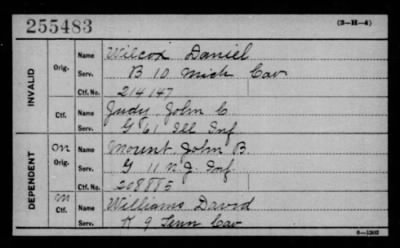 255483
(3-H-4)
INVALID
Orig.
Name Wilcox Daniel
Serv. B 10 Mich Cav
Ctf. No. 214147
Ctf.
Name Judy, John C.
Serv. G 61 Ill Inf
DEPENDENT
m
Orig.
Name Mount, John B.
Serv. G 11 N.J. Inf.
Ctf. No. 208885
m
Ctf.
Name Williams David
Serv. K 9 Tenn Cav